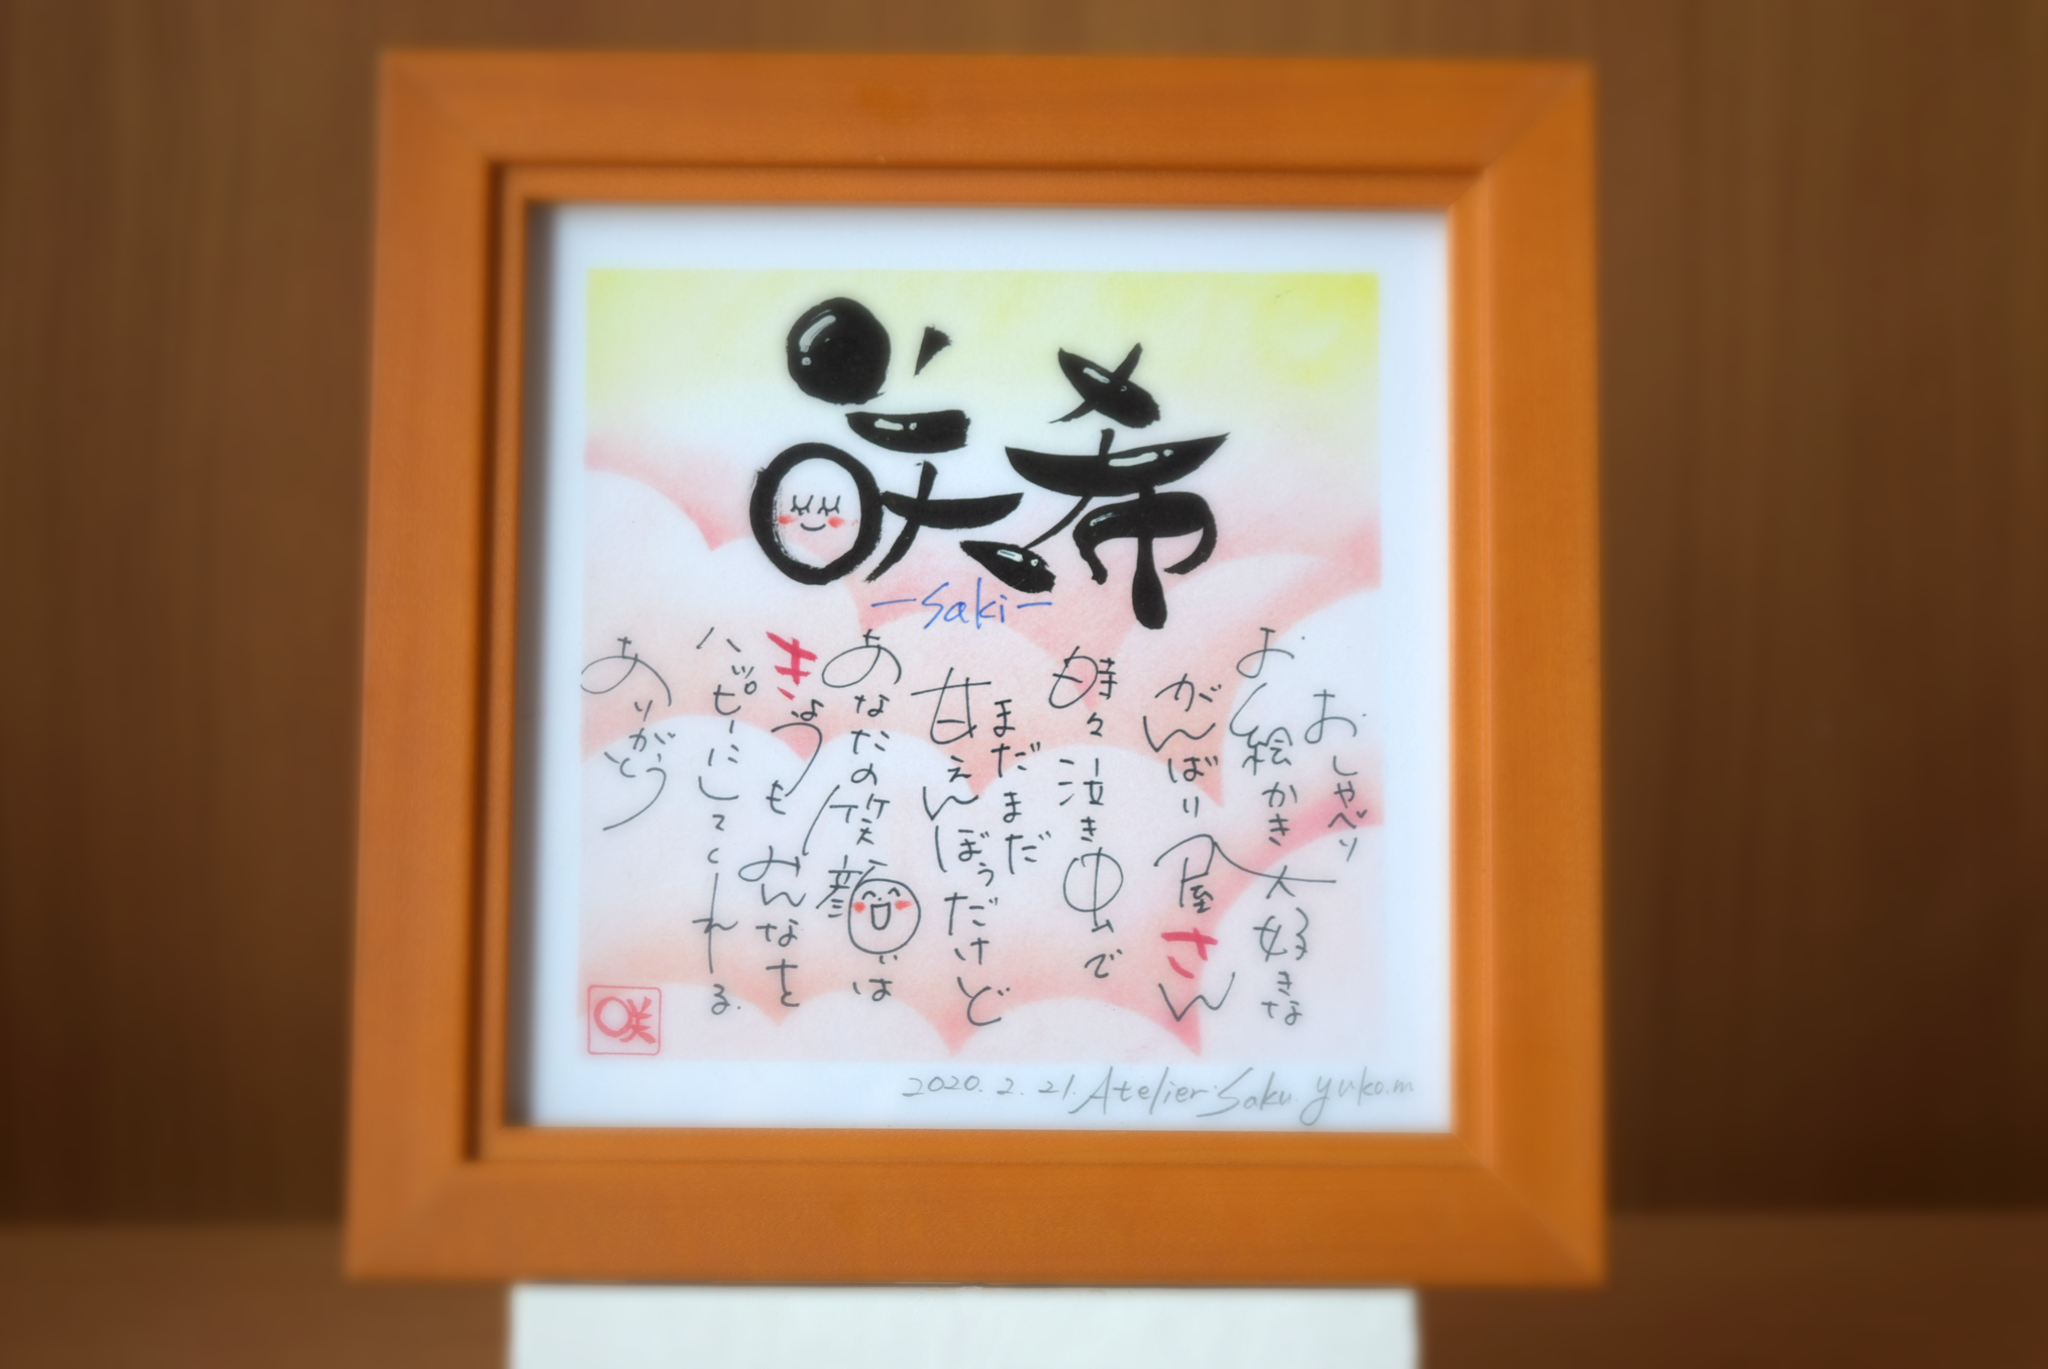 咲希
-Saki-
おしゃべり
お絵かき大好きな
がんばり屋さん
時々泣き虫で
まだまだ
甘えんぼうだけど
あなたの笑顔は
きょうもみんなを
ハッピーにしてくれる.
ありがとう
咲
2020.2.21.Atelier.Saku.yuko.m